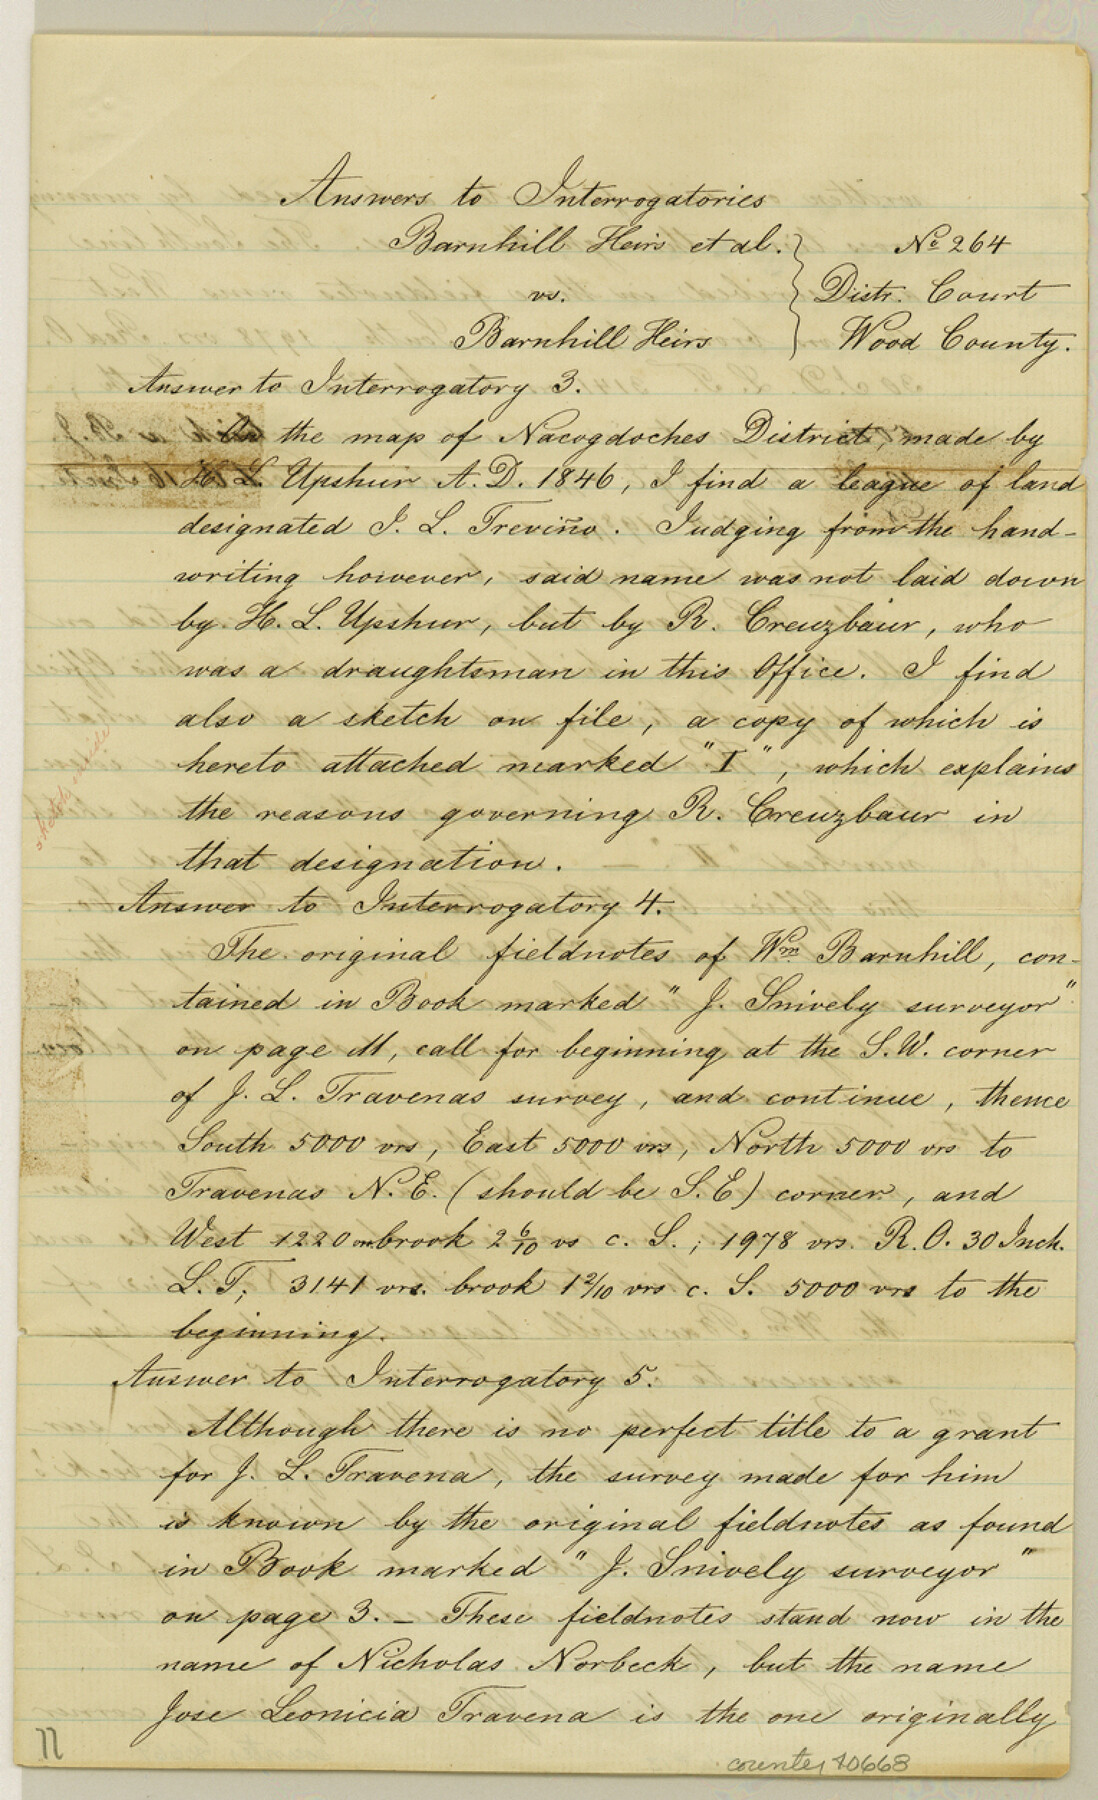 Answers to Interrogatories
Barnhill Heirs et al. } No 264
vs. } Distr. Court
Barnhill Heirs } Wood County.
Answer to Interrogatory 3.
On the map of Nacogdoches District, made by
H. L. Upshur A.D. 1846, I find a league of land
designated J. L. Treviño. Judging from the hand-
writing however, said name was not laid down
by H. L. Upshur, but by R. Creuzbaur, who
was a draughtsman in this Office. I find
also a sketch on file, a copy of which is
hereto attached marked "I", which explains
the reasons governing R. Creuzbaur in
that designation.
sketch inside
Answer to Interrogatory 4.
The original fieldnotes of Wm Barnhill, con-
tained in Book marked "J. Snively surveyor"
on page 11, call for beginning at the S.W. corner
of J. L. Travenas survey, and continue, thence
South 5000 vrs, East 5000 vrs, North 5000 vrs to
Travenas N.E. (should be S.E) corner, and
West 1220 vrs brook 2 6/10 vs c. S.; 1978 vrs. R.O. 30 Inch.
L.T; 3141 vrs. brook 1 2/10 vrs c. S. 5000 vrs to the
beginning.
Answer to Interrogatory 5.
Although there is no perfect title to a grant
for J. L. Travena, the survey made for him
is known by the original fieldnotes as found
in Book marked "J. Snively surveyor"
on page 3. _ These fieldnotes stand now in the
name of Nicholas Norbeck, but the name
Jose Leonicia Travena is the one originally
77
counter 40668